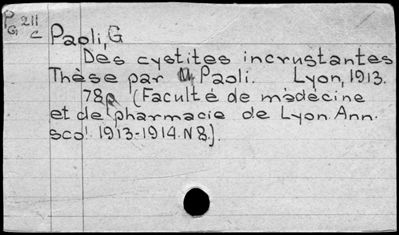 P 211
G C
Paoli, G
Des cystites incrustantes
Thèse par Paoli. Lyon, 1913.
78p (Faculté de médecine
et de pharmacie de Lyon. Ann.
scol. 1913-1914. N 8.).